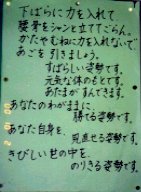 下ばらに力を入れて
腰骨をシャンと立ててごらん。
かたやむねに力を入れないで
あごを引きましょう。
すばらしい姿勢です。
元気な体のもとです。
あたまがすんできます。
あなたのわがままに、
勝てる姿勢です。
あなた自身を、
見直せる姿勢です。
きびしい世の中を
のりきる姿勢です。